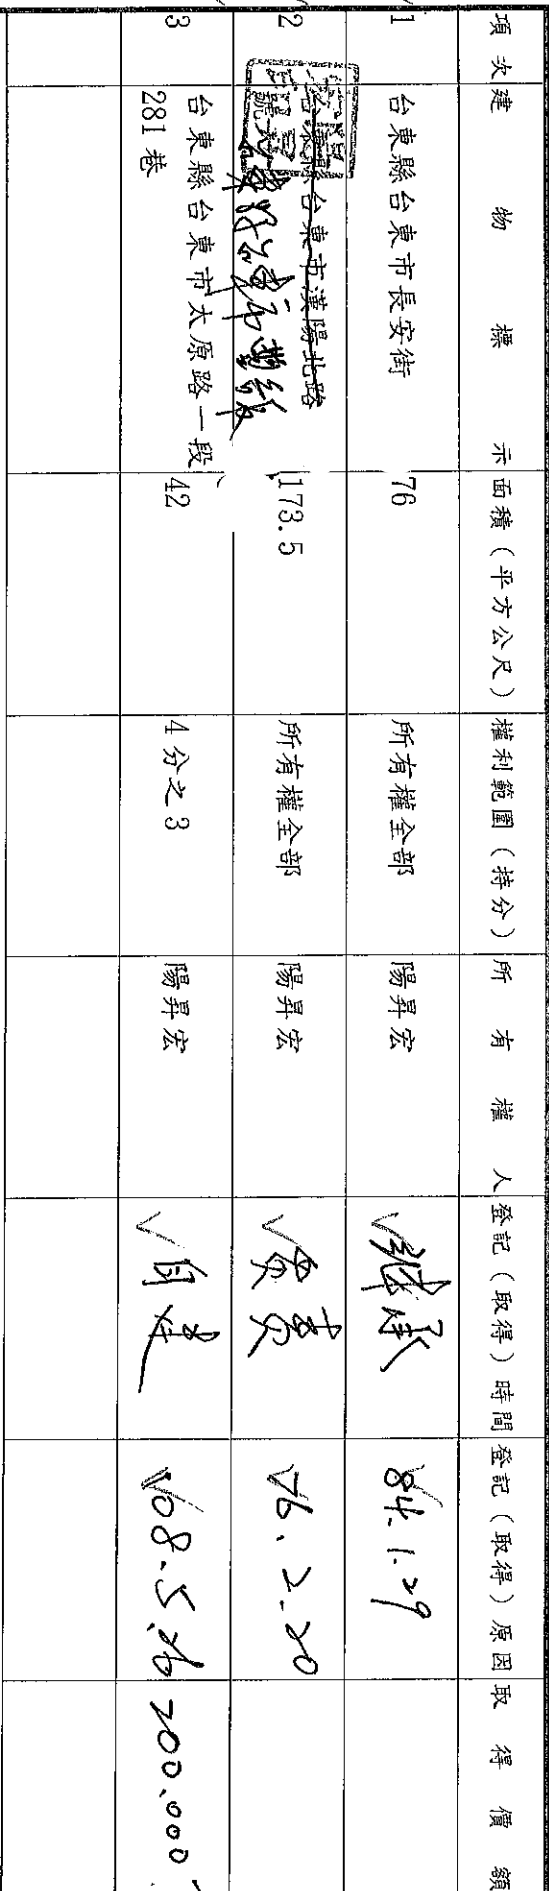 項次 建物標示 面積（平方公尺） 權利範圍（持分） 所有權人 登記（取得）時間 登記（取得）原因 取得價額
1 台東縣台東市長安街 76 所有權全部 陽昇宏 繼承 84.1.29
2 台東縣台東市漢陽北路 173.5 所有權全部 陽昇宏 買賣 76.2.20
3 台東縣台東市太原路一段 42 4分之3 陽昇宏 自建 108.5.26 200.000
281巷